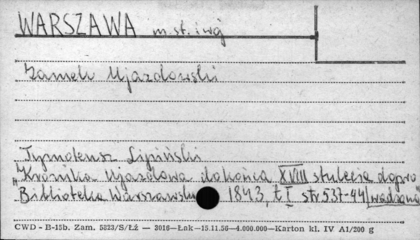 WARSZAWA m. st. i woj
Zamek Ujazdowski
Tymoteusz Lipiński
"Kronika Ujazdowa do końca XVIII stulecia dopro
Biblioteka Warszawska 1843, t I str 537-44 wadzona
CWD - B-15b. Zam. 5823/S/Łź — 3016—Łok—15.11.56—4.000.000—Karton kl. IV A1/200 g